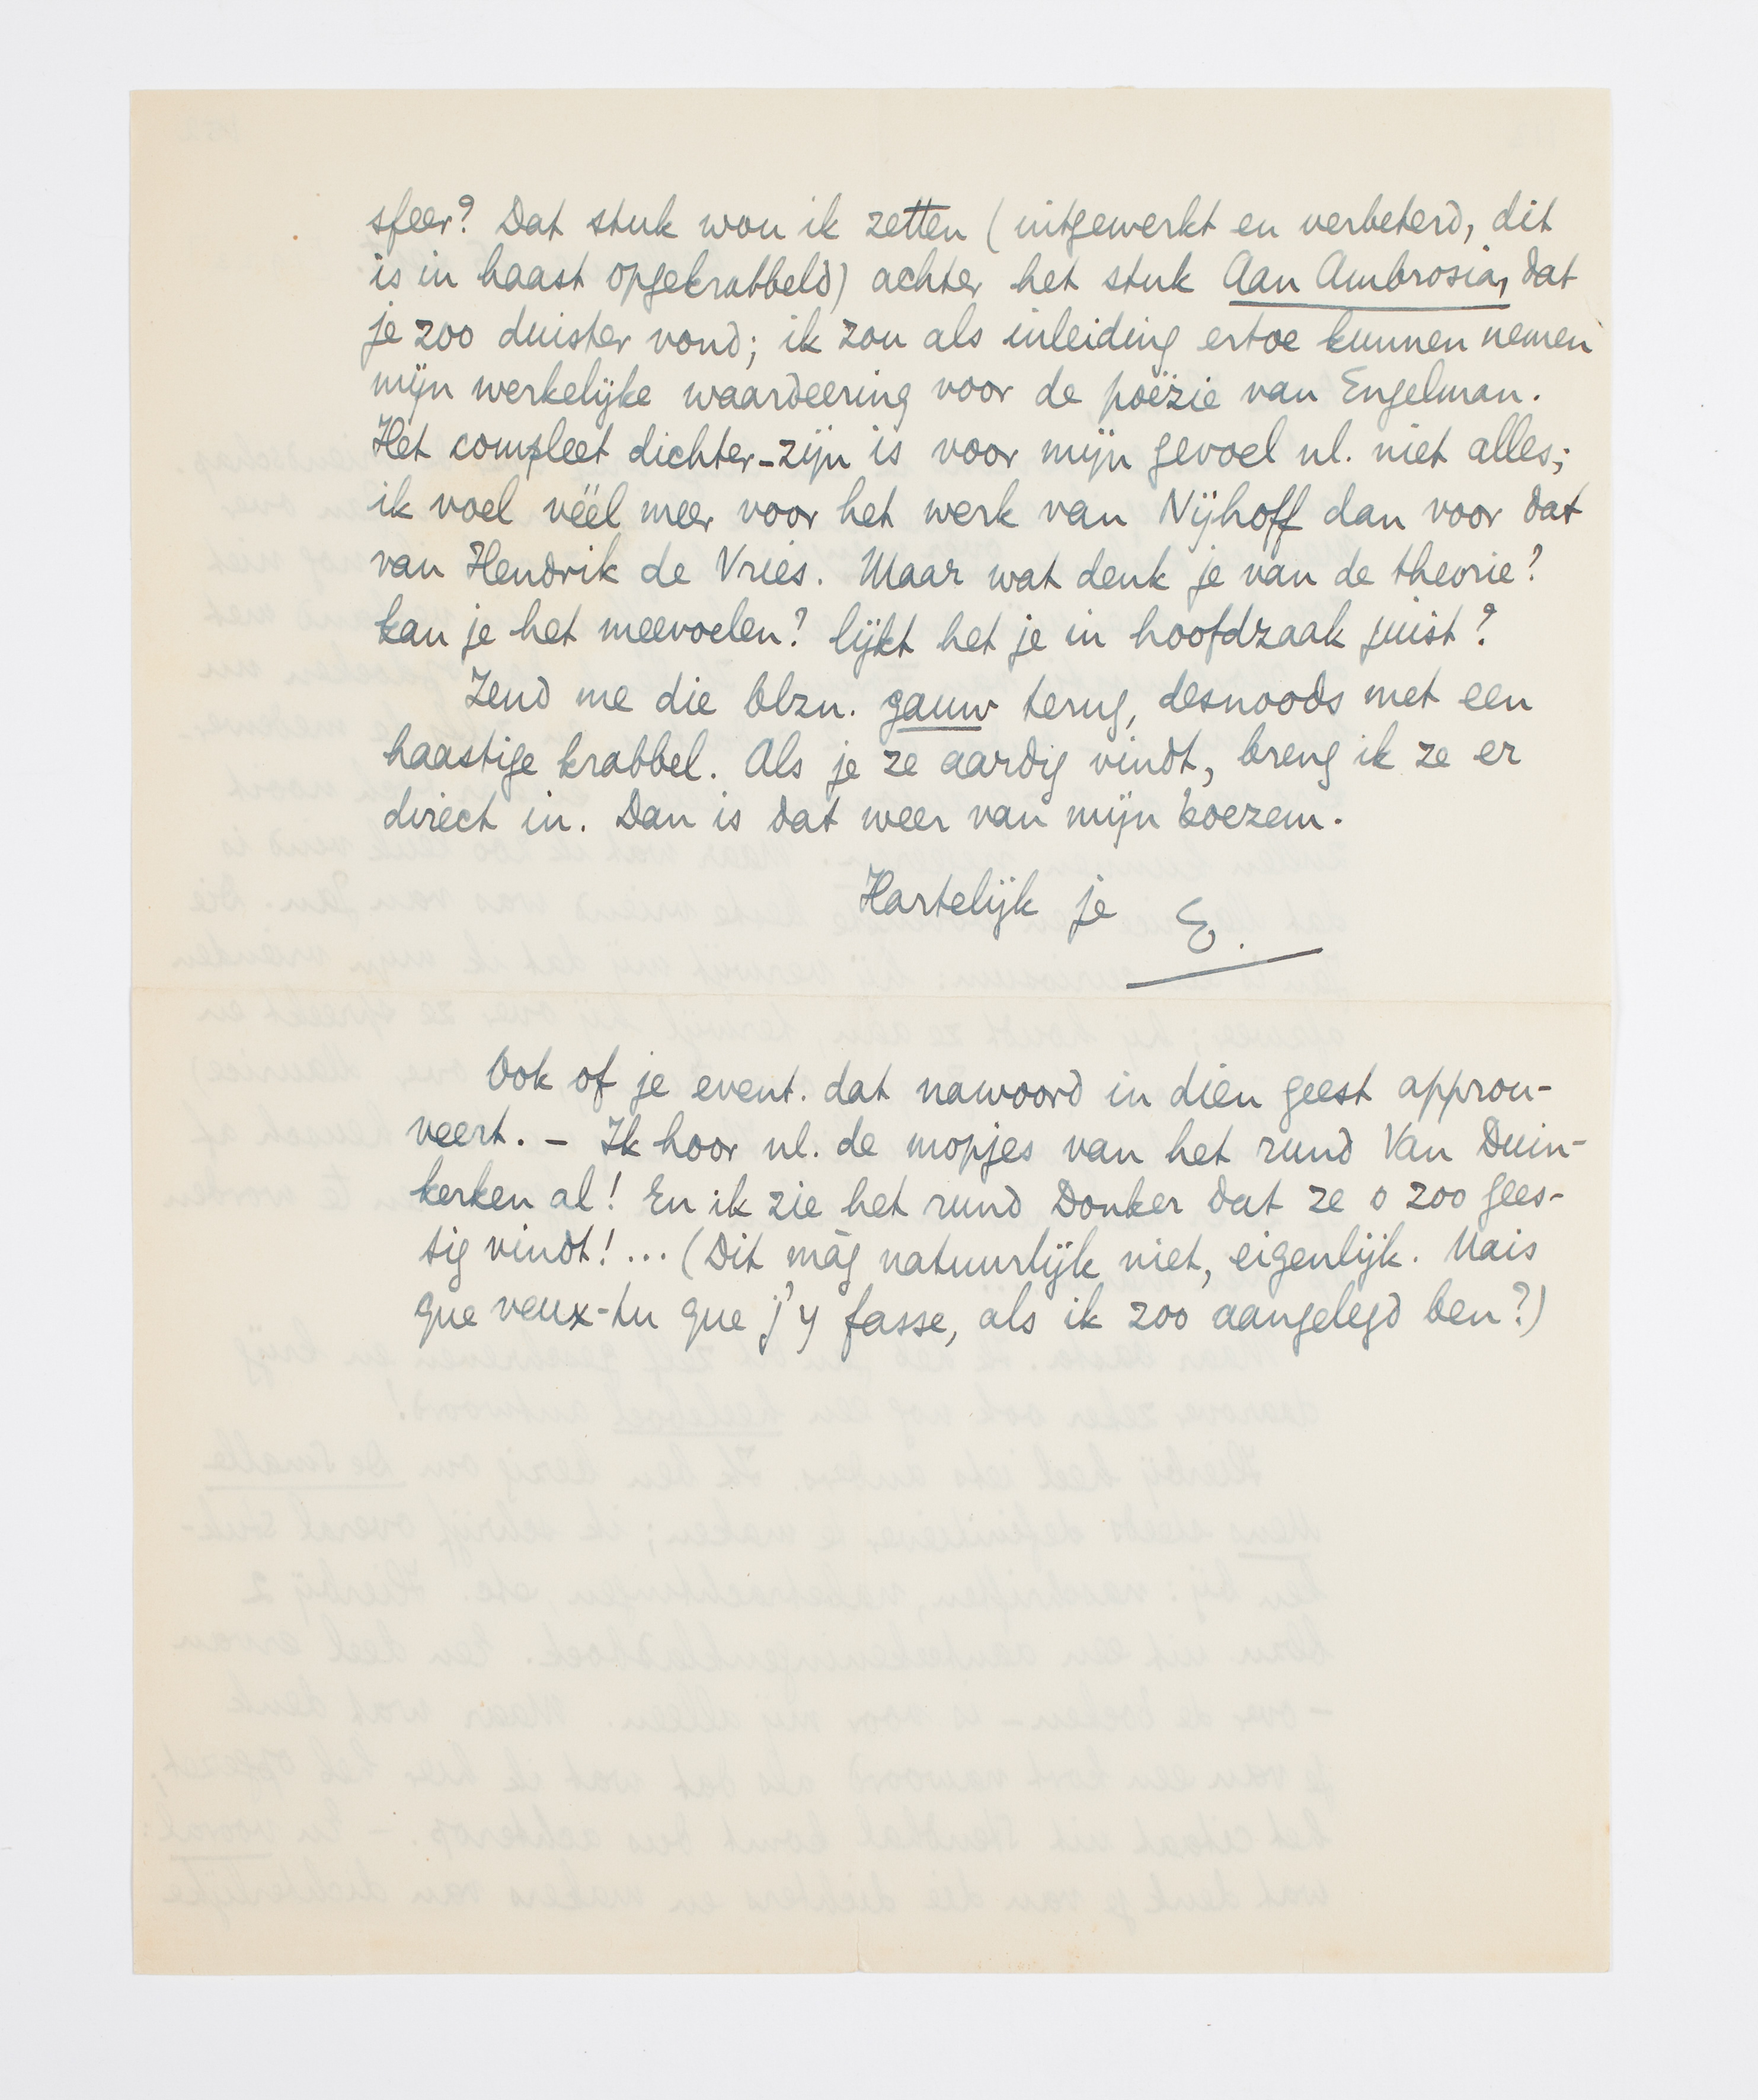 sfeer? Dat stuk wou ik zetten (uitgewerkt en verbeterd, dit
is in haast opgekrabbeld) achter het stuk Aan Ambrosia, dat
je zoo duister vond; ik zou als inleiding ertoe kunnen nemen
mijn werkelijke waardeering voor de poëzie van Engelman.
Het compleet dichter-zijn is voor mijn gevoel nl. niet alles;
ik voel véél meer voor het werk van Nijhoff dan voor dat
van Hendrik de Vries. Maar wat denk je van de theorie?
kan je het meevoelen? lijkt het je in hoofdzaak juist?
Zend me die blzn. gauw terug, desnoods met een
haastige krabbel. Als je ze aardig vindt, breng ik ze er
direct in. Dan is dat weer van mijn boezem.
Hartelijk je E.
Ook of je event. dat nawoord in dien geest approu-
veert. – Ik hoor nl. de mopjes van het rund Van Duin-
kerken al! En ik zie het rund Donker dat ze o zoo gees-
tig vindt!... (Dit mág natuurlijk niet, eigenlijk. Mais
que veux-tu que j'y fasse, als ik zoo aangelegd ben?)